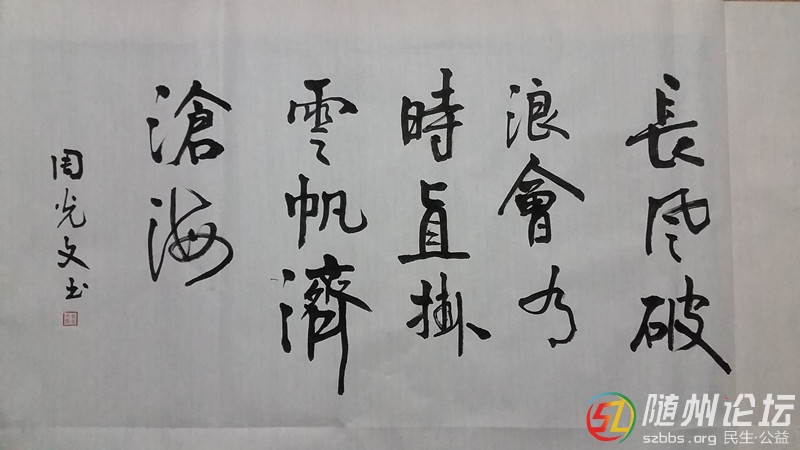 長風破
浪會有
時直掛
雲帆濟
滄海
周光文书
随州论坛
szbbs.org 民生·公益